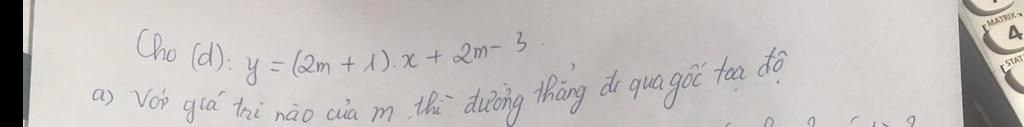 Cho (d): y = (2m + 1).x + 2m - 3.
a) Với giá trị nào của m thì đường thẳng đi qua gốc toạ độ
MATRIX
4
STAT